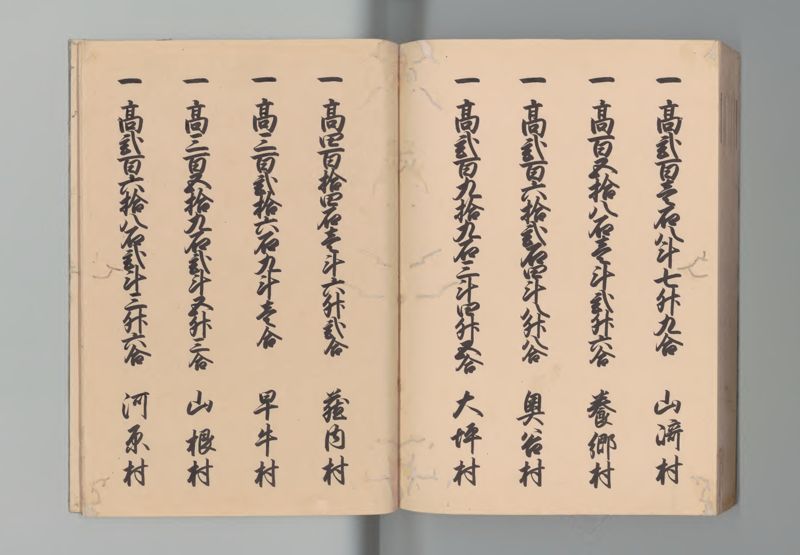 一 高弐百壱石八斗七升九合 山崎村
一 高百五拾八石壱斗弐升六合 養郷村
一 高百六拾弐石四斗八升八合 奥谷村
一 高弐百九拾九石三斗四升五合 大坪村
一 高四百拾四石壱斗六升弐合 蔵内村
一 高三百弐拾六石九斗壱合 早牛村
一 高三百五拾九石弐斗五升三合 山根村
一 高弐百六拾八石弐斗三升六合 河原村